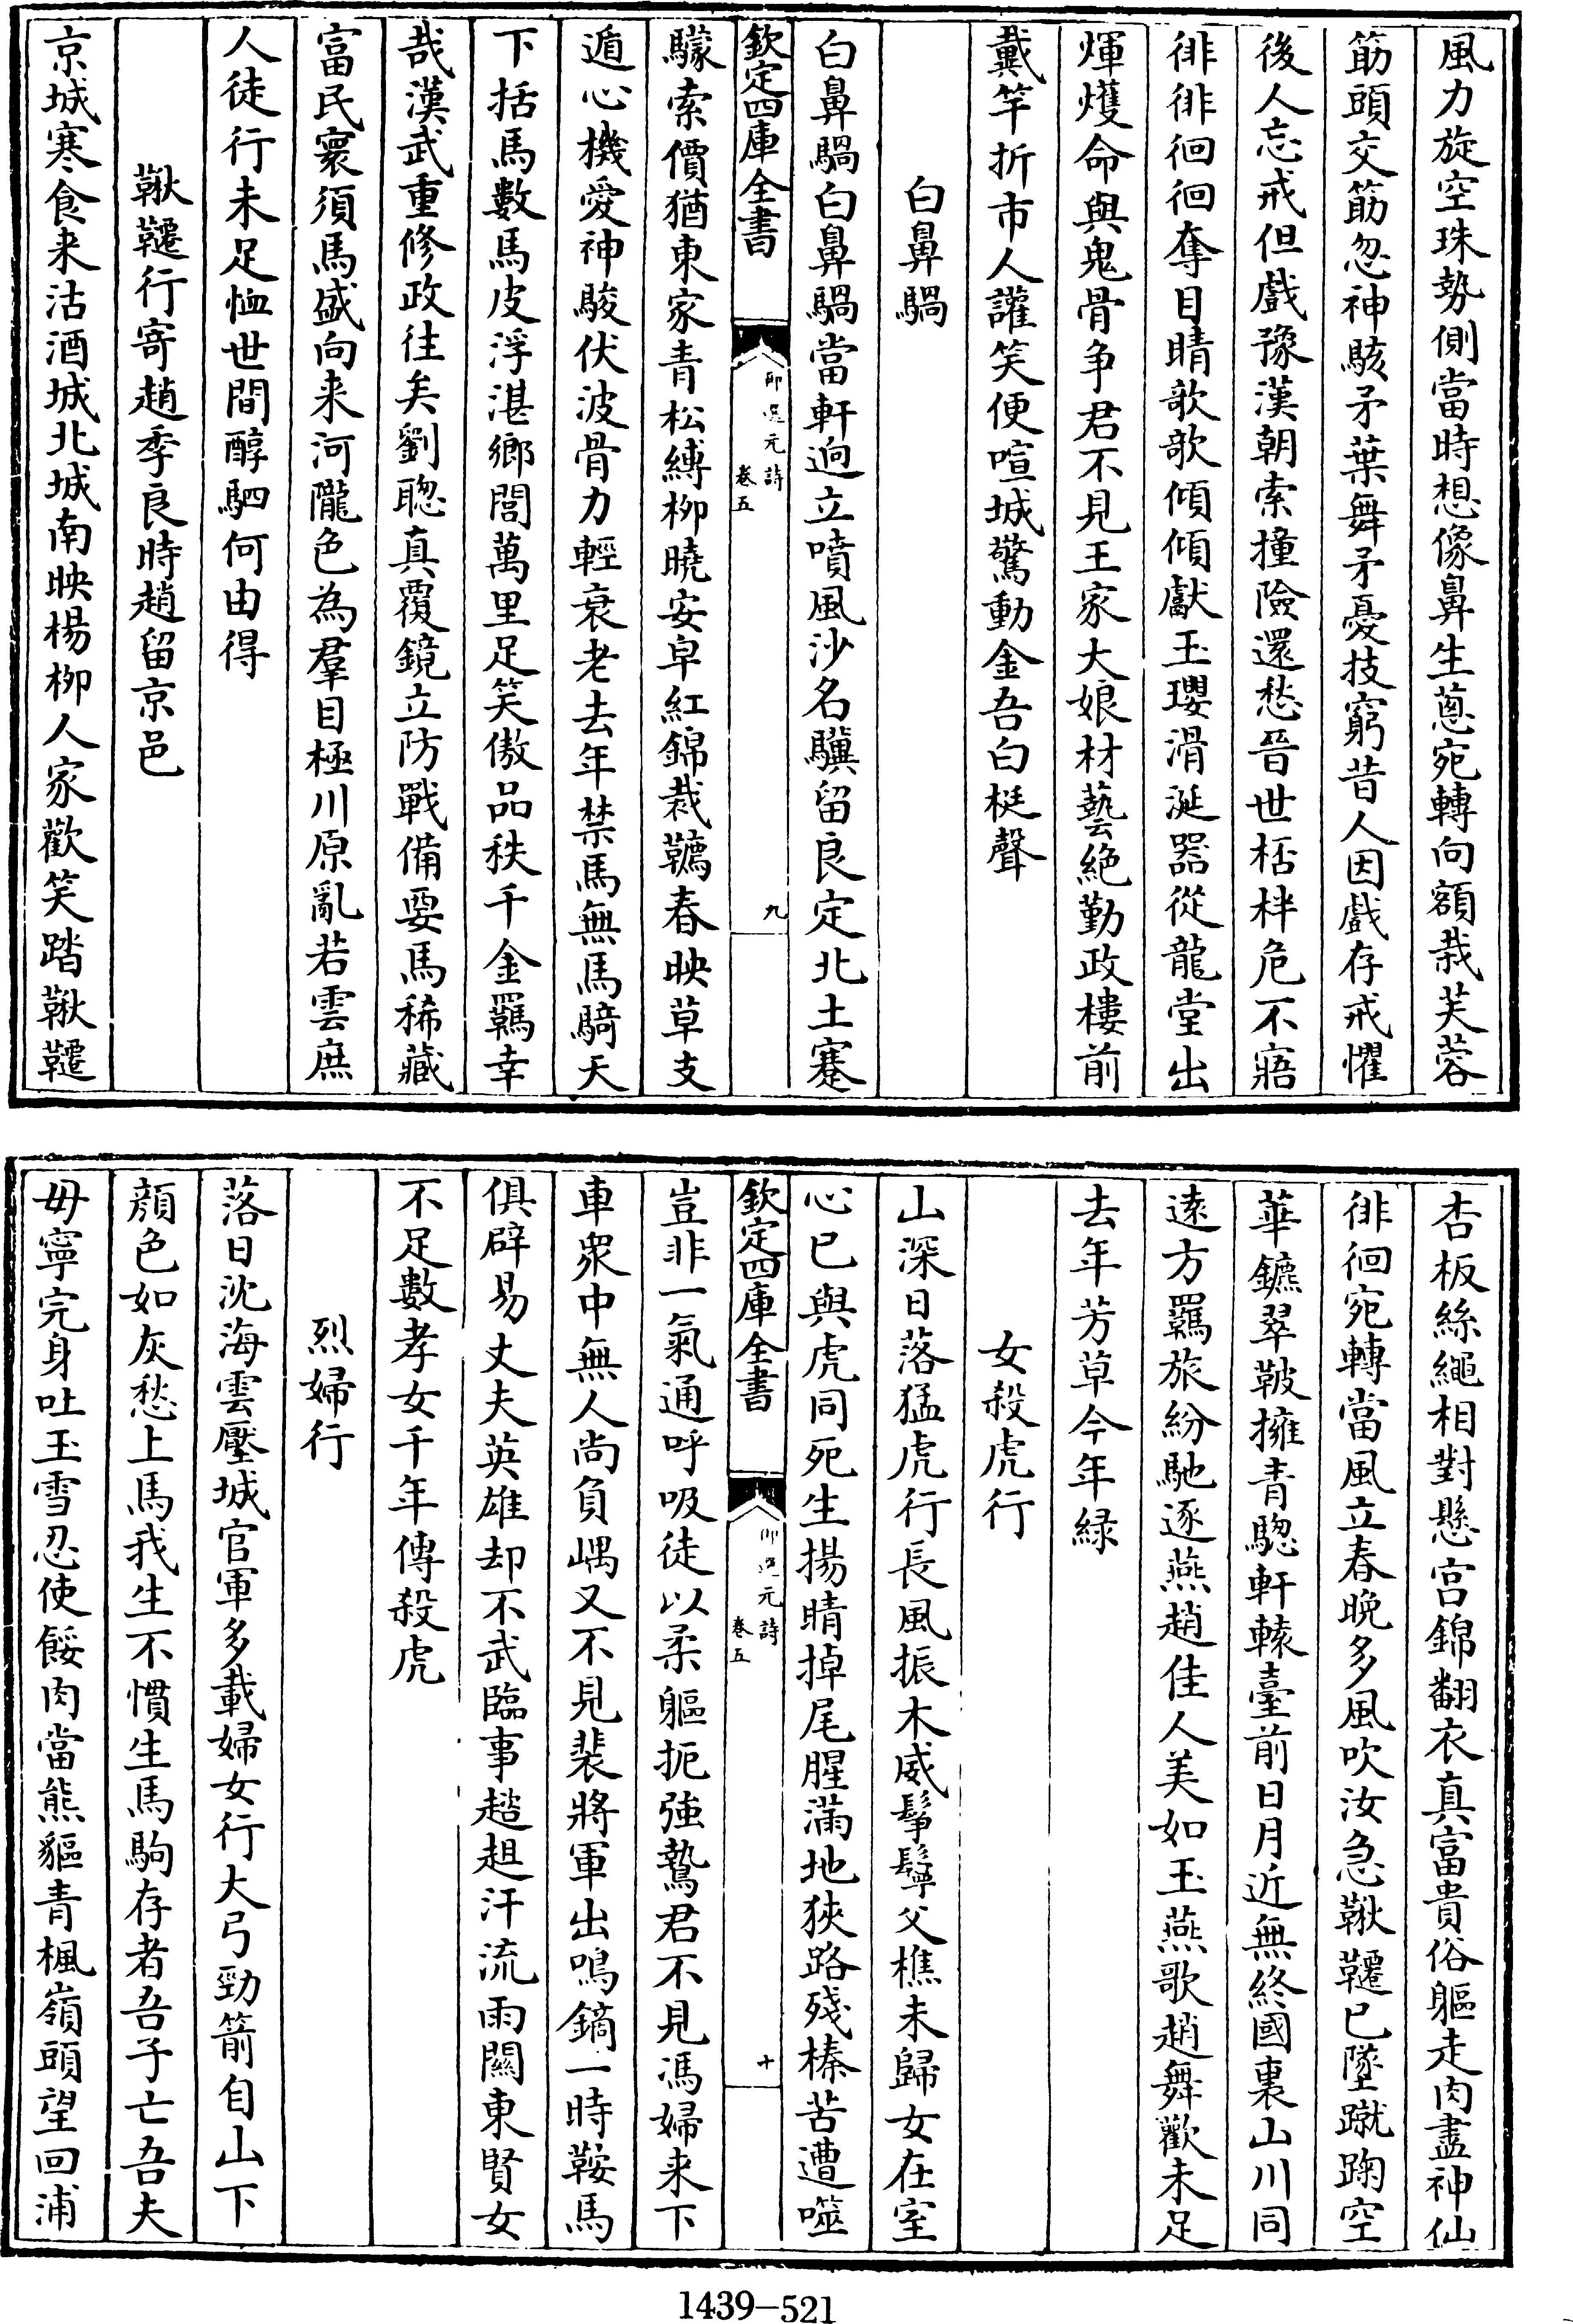 風力旋空珠勢側當時想像鼻生蔥宛轉向額栽芙蓉
筋頭交筋忽神駭矛葉舞矛憂技窮昔人因戲存戒懼
後人忘戒但戲豫漢朝索撞險還愁晉世桮柈危不寤
徘徘徊徊奪目睛歌歌傾傾獻玉瓔滑涎器從龍堂出
煇㸌命與鬼骨争君不見王家大娘材藝絶勤政樓前
戴竿折市人讙笑便喧城驚動金吾白梃聲
白鼻騧
白鼻騧白鼻騧當軒逈立噴風沙名驥留良定北土蹇
欽定四庫全書
御選元詩
卷五
九
驤索價猶東家青松縛栁曉安皁紅錦裁韉春映草支
遁心機愛神駿伏波骨力輕衰老去年禁馬無馬騎天
下括馬數馬皮浮湛鄉閭萬里足笑傲品秩千金羈幸
哉漢武重修政往矣劉聰真覆鏡立防戰備要馬稀藏
富民寰須馬盛向来河隴色為羣目極川原亂若雲庶
人徒行未足恤世間醇駟何由得
鞦韆行寄趙季良時趙留京邑
京城寒食来沽酒城北城南映楊栁人家歡笑踏鞦韆
杏板絲繩相對懸宫錦翻衣真富貴俗軀走肉盡神仙
徘徊宛轉當風立春晚多風吹汝急鞦韆已墜蹴踘空
華鑣翠鞁擁青驄軒轅臺前日月近無終國裏山川同
逺方羈旅紛馳逐燕趙佳人美如玉燕歌趙舞歡未足
去年芳草今年緑
女殺虎行
山深日落猛虎行長風振木威髼鬡父樵未歸女在室
心已與虎同死生揚睛掉尾腥滿地狹路殘榛苦遭噬
欽定四庫全書
御選元詩
卷五
十
豈非一氣通呼吸徒以柔軀扼強鷙君不見馮婦来下
車衆中無人尚負嵎又不見裴將軍出鳴鏑一時鞍馬
俱辟易丈夫英雄却不武臨事趑趄汗流雨關東賢女
不足數孝女千年傳殺虎
烈婦行
落日沈海雲壓城官軍多載婦女行大弓勁箭自山下
顔色如灰愁上馬我生不慣生馬駒存者吾子亡吾夫
毋寧完身吐玉雪忍使餒肉當熊貙青楓嶺頭望回浦
1439-521